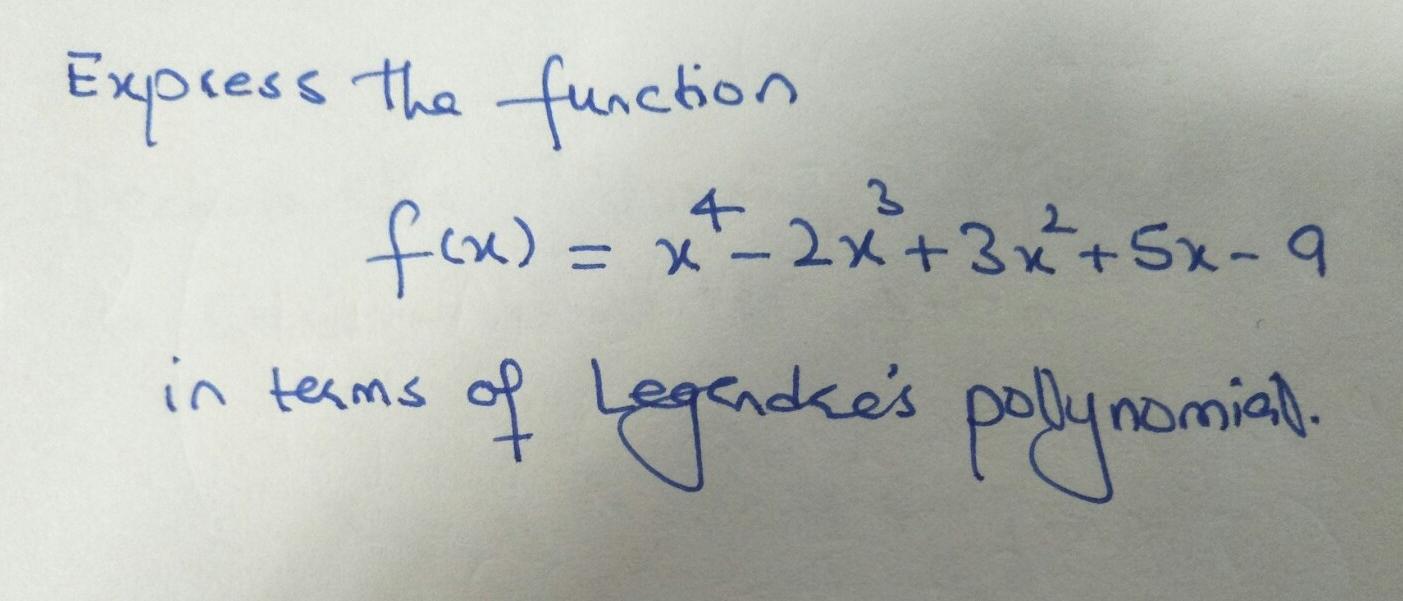 Express the function
f(x) = x⁴ - 2x³ + 3x² + 5x - 9
in terms of Legendre's polynomial.